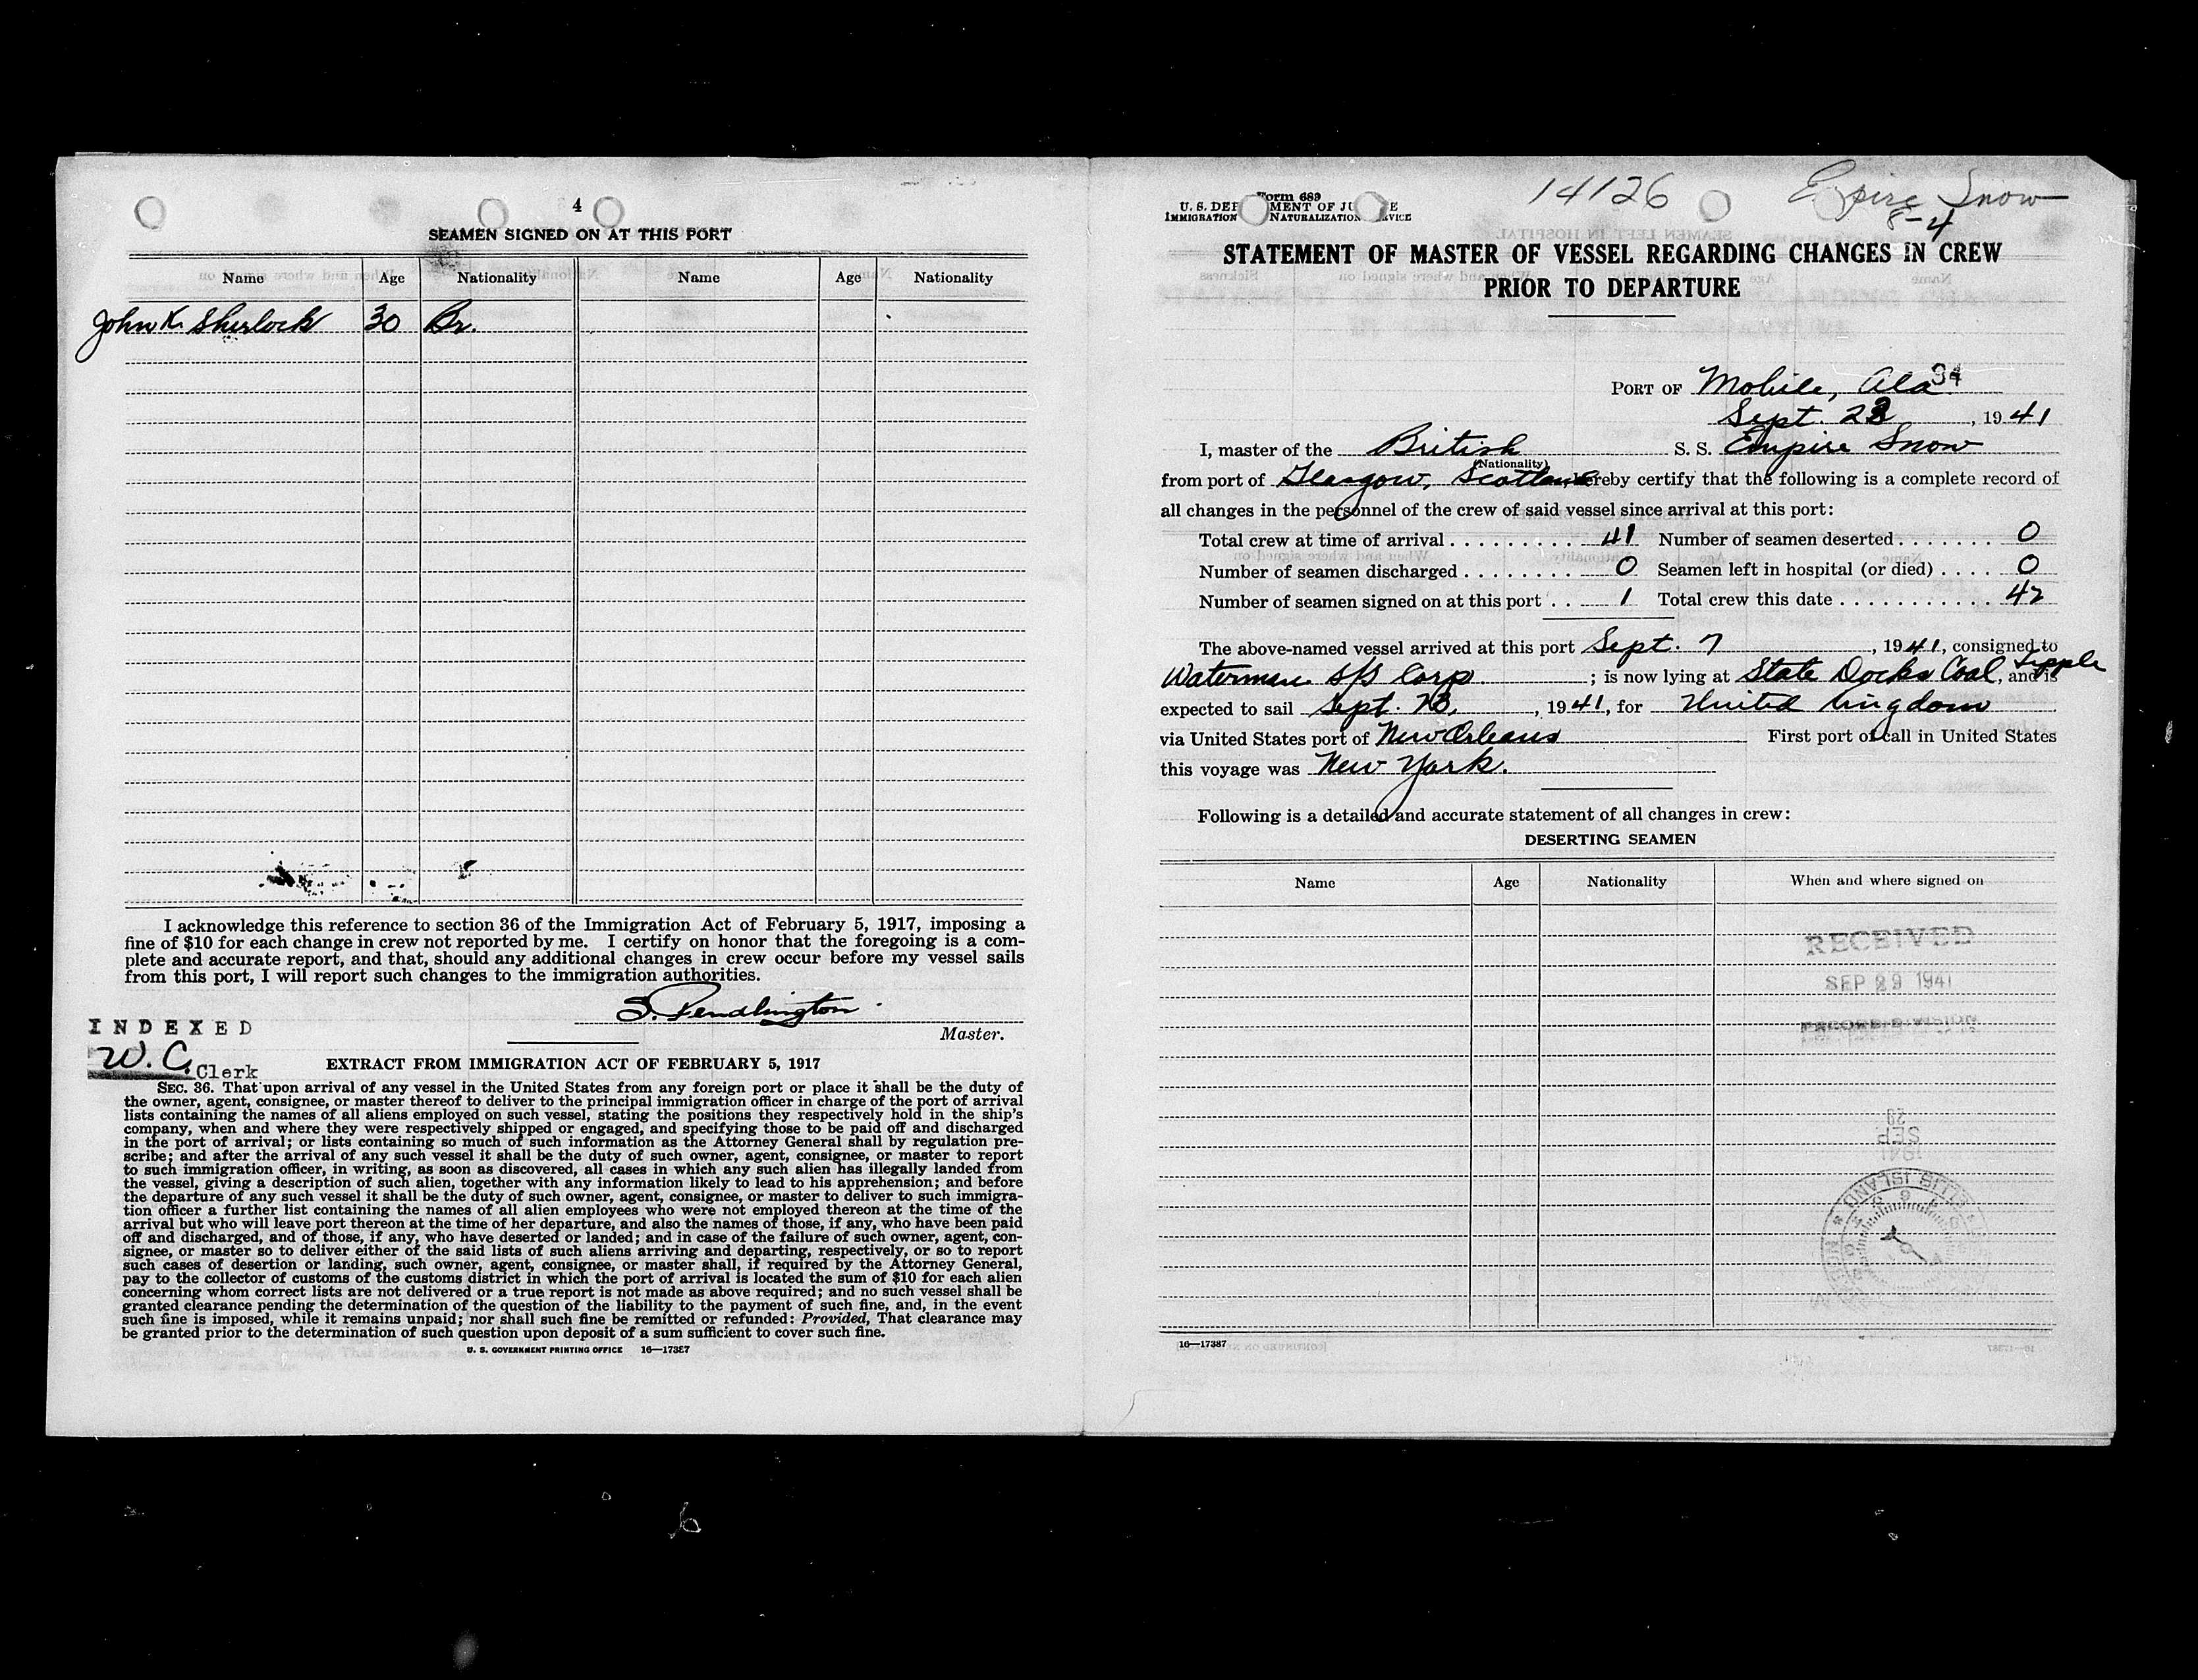 4
SEAMEN SIGNED ON AT THIS PORT
Name Age Nationality Name Age Nationality
John K. Sherlock 30 Br.
I acknowledge this reference to section 36 of the Immigration Act of February 5, 1917, imposing a
fine of $10 for each change in crew not reported by me. I certify on honor that the foregoing is a com-
plete and accurate report, and that, should any additional changes in crew occur before my vessel sails
from this port, I will report such changes to the immigration authorities.
S. Pendlington
Master.
INDEXED
W. C. Clerk
EXTRACT FROM IMMIGRATION ACT OF FEBRUARY 5, 1917
SEC. 36. That upon arrival of any vessel in the United States from any foreign port or place it shall be the duty of
the owner, agent, consignee, or master thereof to deliver to the principal immigration officer in charge of the port of arrival
lists containing the names of all aliens employed on such vessel, stating the positions they respectively hold in the ship's
company, when and where they were respectively shipped or engaged, and specifying those to be paid off and discharged
in the port of arrival; or lists containing so much of such information as the Attorney General shall by regulation pre-
scribe; and after the arrival of any such vessel it shall be the duty of such owner, agent, consignee, or master to report
to such immigration officer, in writing, as soon as discovered, all cases in which any such alien has illegally landed from
the vessel, giving a description of such alien, together with any information likely to lead to his apprehension; and before
the departure of any such vessel it shall be the duty of such owner, agent, consignee, or master to deliver to such immigra-
tion officer a further list containing the names of all alien employees who were not employed thereon at the time of the
arrival but who will leave port thereon at the time of her departure, and also the names of those, if any, who have been paid
off and discharged, and of those, if any, who have deserted or landed; and in case of the failure of such owner, agent, con-
signee, or master so to deliver either of the said lists of such aliens arriving and departing, respectively, or so to report
such cases of desertion or landing, such owner, agent, consignee, or master shall, if required by the Attorney General,
pay to the collector of customs of the customs district in which the port of arrival is located the sum of $10 for each alien
concerning whom correct lists are not delivered or a true report is not made as above required; and no such vessel shall be
granted clearance pending the determination of the question of the liability to the payment of such fine, and, in the event
such fine is imposed, while it remains unpaid; nor shall such fine be remitted or refunded: Provided, That clearance may
be granted prior to the determination of such question upon deposit of a sum sufficient to cover such fine.
U. S. GOVERNMENT PRINTING OFFICE 16—17387
14126 Epire Snow
8-4
Form 689
U. S. DEP MENT OF JU E
IMMIGRATION NATURALIZATION RVICE
STATEMENT OF MASTER OF VESSEL REGARDING CHANGES IN CREW
PRIOR TO DEPARTURE
94
PORT OF Mobile, Ala
Sept. 23, 1941
I, master of the British S. S. Empire Snow
(Nationality)
from port of Glasgow, Scotland hereby certify that the following is a complete record of
all changes in the personnel of the crew of said vessel since arrival at this port:
Total crew at time of arrival . . . . . . . . . . 41 Number of seamen deserted . . . . . . . 0
Number of seamen discharged . . . . . . . . 0 Seamen left in hospital (or died) . . . . 0
Number of seamen signed on at this port . . 1 Total crew this date . . . . . . . . . . . 42
The above-named vessel arrived at this port Sept. 7, 1941, consigned to
Waterman S/S Corp.; is now lying at State Docks Coal Tipple, and is
expected to sail Sept. 23, 1941, for United Kingdom
via United States port of New Orleans First port of call in United States
this voyage was New York.
Following is a detailed and accurate statement of all changes in crew:
DESERTING SEAMEN
Name Age Nationality When and where signed on
RECEIVED
SEP 29 1941
29
SEP
1941
ELLIS ISLAND
16—17387